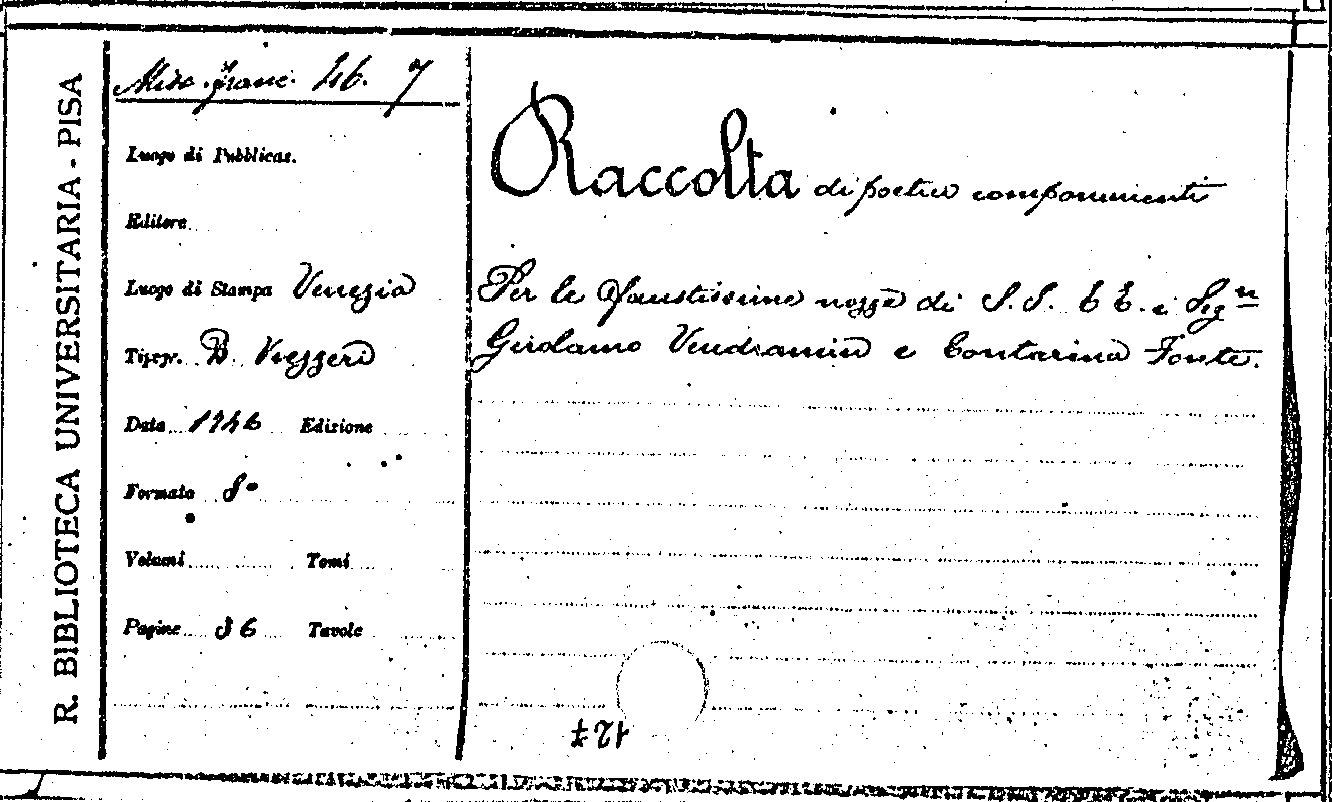 R. BIBLIOTECA UNIVERSITARIA - PISA
Misc. franc. 46. 7
Luogo di Pubblicaz.
Editore
Luogo di Stampa Venezia
Tipogr.
Data 1746 Edizione
Formato 8°
Volumi Tomi
Pagine 36 Tavole
Raccolta di poetici componimenti
Per le faustissime nozze di S.S. E E. i Sigri
Girolamo Vendramin e Contarina Fonte.
127